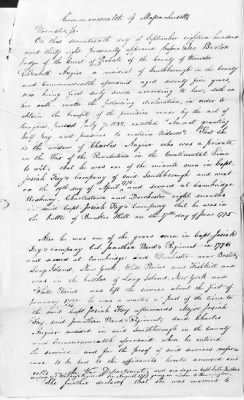 Commonwealth of Massachusetts
Worcester, ss.
On this seventeenth day of September eighteen hundred
and thirty eight personally appeared before me
Judge of the Court of Probate of the County of Worcester
Elizabeth Angier a resident of Southborough in the County
and Commonwealth aforesaid aged seventy five years,
who being first duly sworn according to law, doth on
her oath, make the following declaration, in order to
obtain the benefit of the provision made by the act of
Congress, passed July 7, 1838, entitled "An act granting
half pay and pensions to certain widows". That she
is the widow of Charles Angier who was a private,
in the War of the Revolution in the Continental Line,
to wit, that he went one of the month men in capt.
Josiah Fay's company of said Southborough and went
on the 19th day of April, and served at Cambridge
Roxbury, Charlestown and Dorchester eight months
in said capt Josiah Fay's Company, that he was in
the battle of Bunker Hill on the 17th day of June 1775
Also he was one of the years men in capt Josiah
Fay's company Col Jonathan Ward's Regiment in 1776
and served at Cambridge and Dorchester near Boston,
Long Island, New York, White Plains and Fishkill and
was in the battles of Long Island, New York and
White Plains. He left the service about the first of
January 1777. he was a waiter a part of the time to
the said capt Josiah Fay afterwards Major Josiah
Fay said Jonathan Ward's Regiment, said Charles
Angier resided in said Southborough in the County
and Commonwealth aforesaid when he entered
the service and for the proof of said services refers
one to the affidavits hereto annexed and
rolls in the War Department
She further declares that she was married to